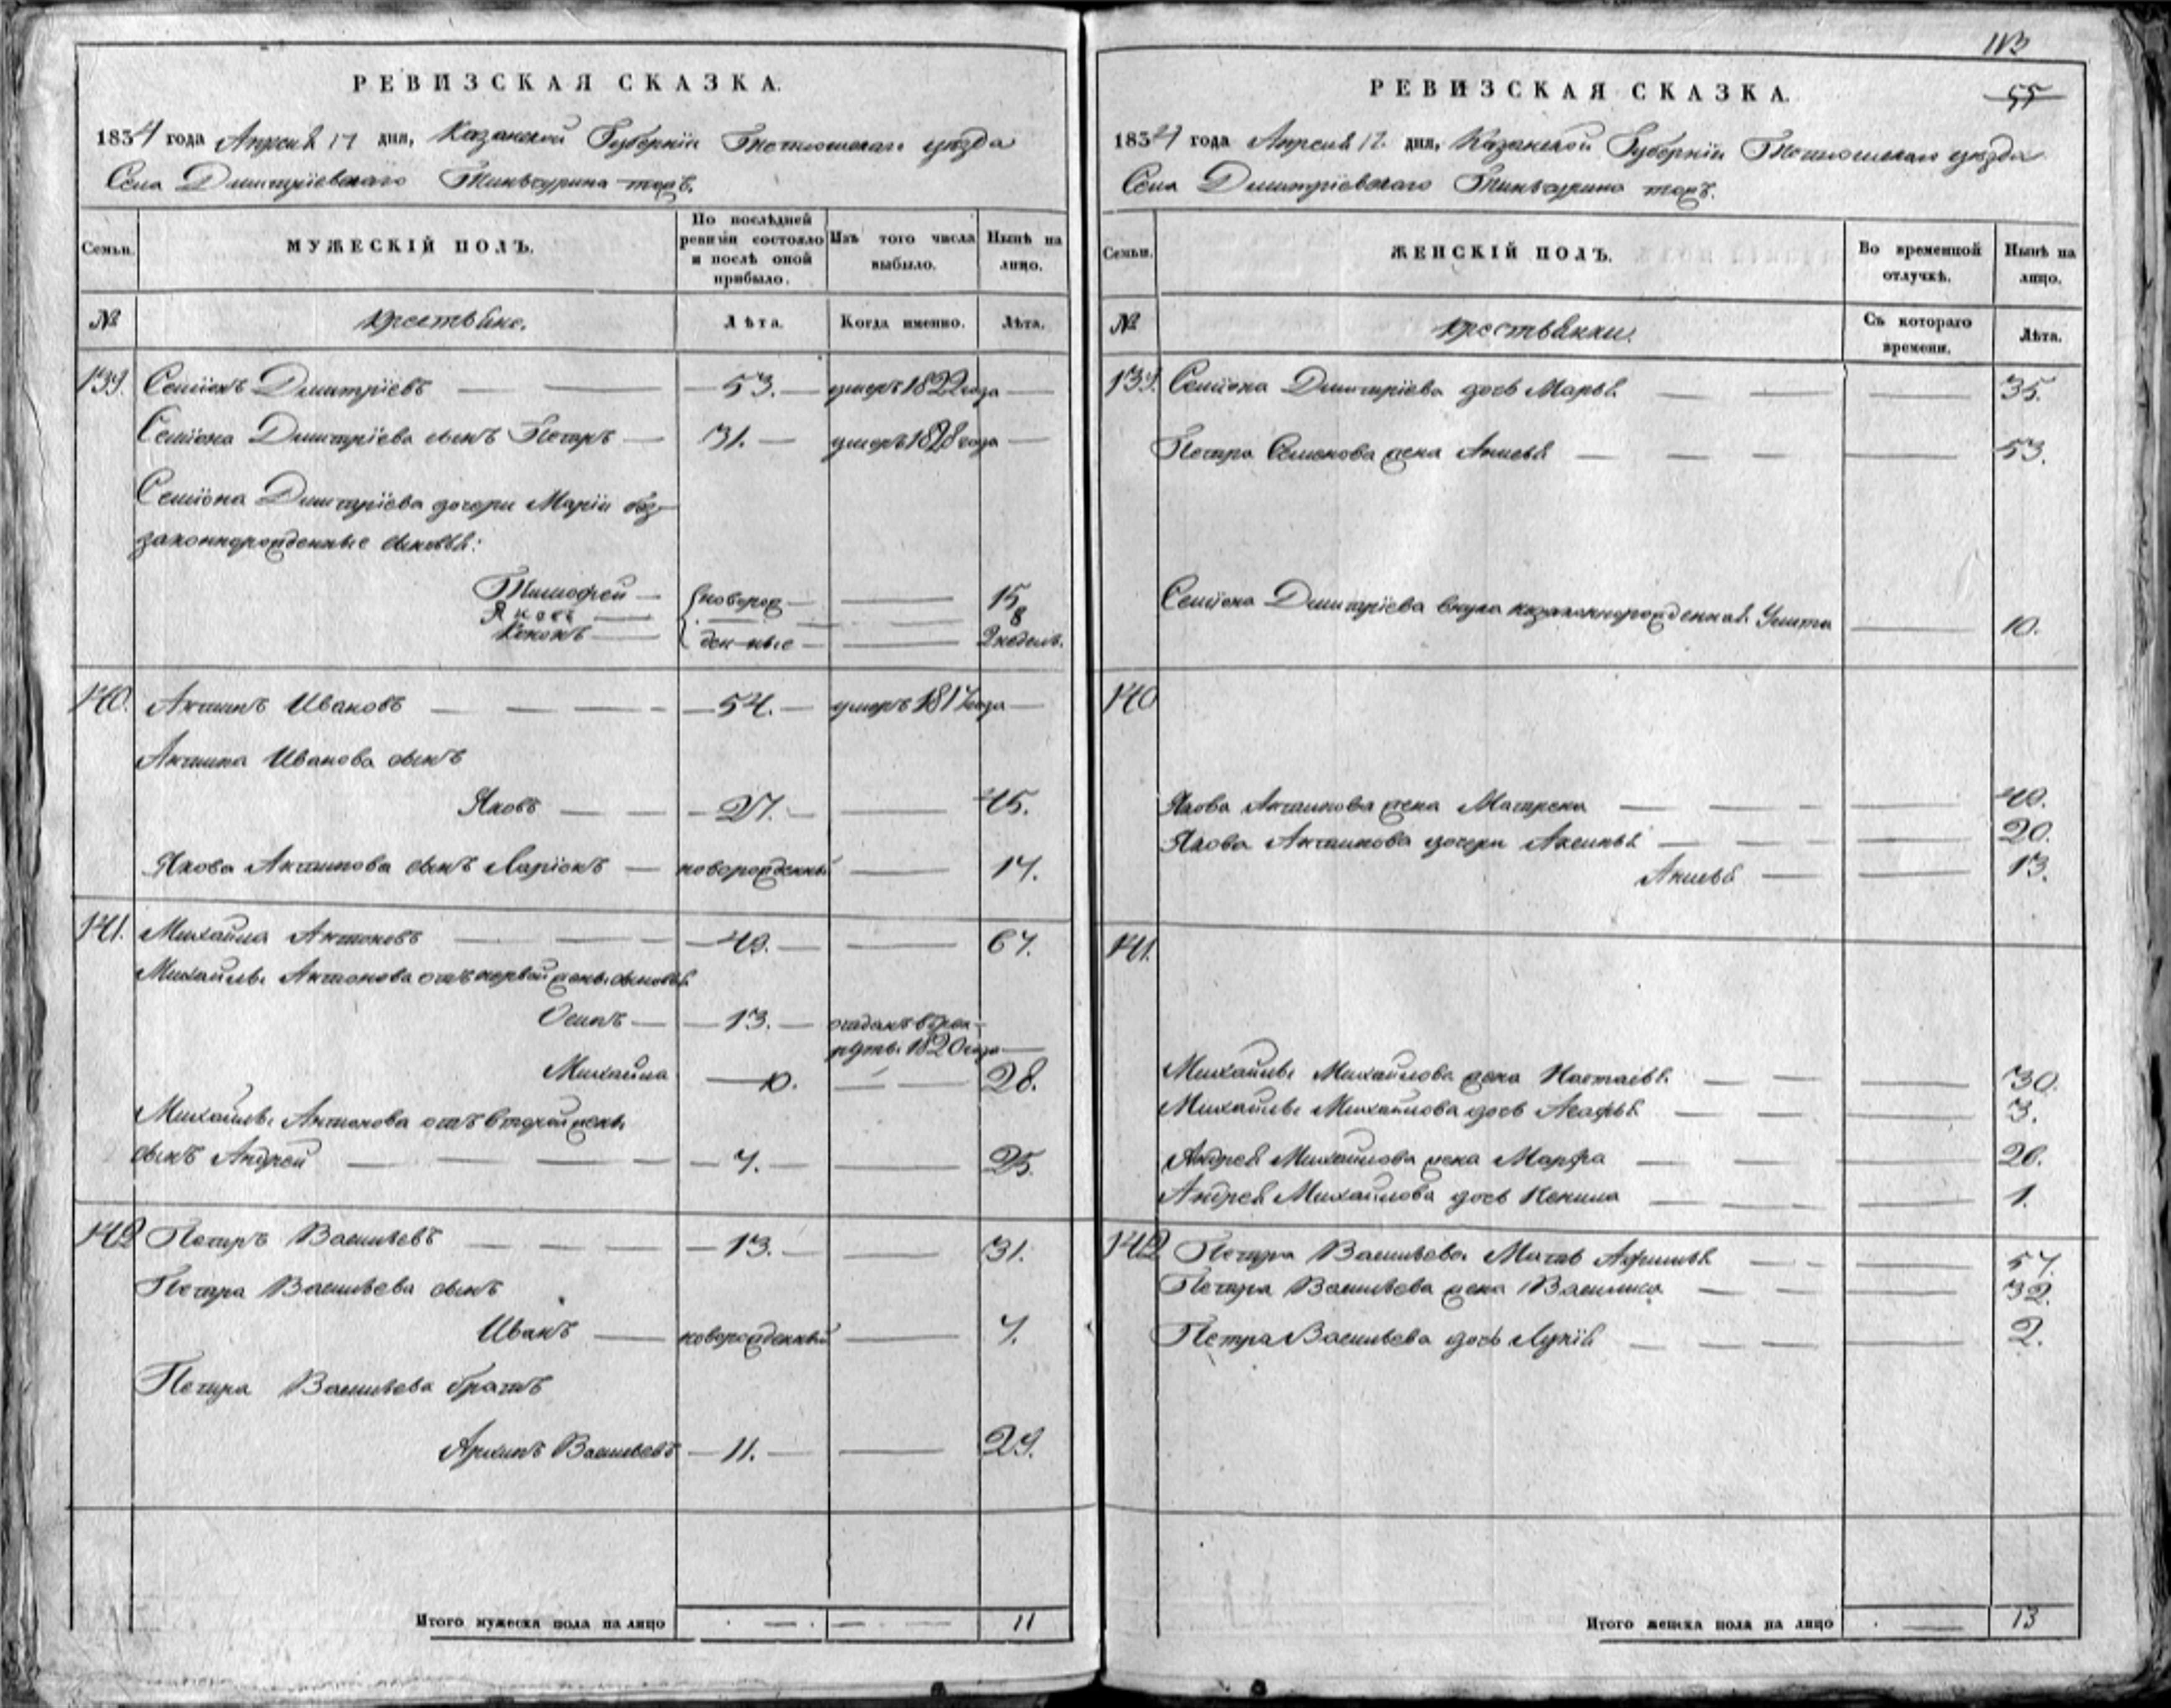 РЕВИЗСКАЯ СКАЗКА.
1834 года Апреля 17 дня, Казанской Губернiи Тетюшскаго уѣзда
Села Дмитрiевскаго Тиньчурина тожъ.
Семьи.
МУЖЕСКIЙ ПОЛЪ.
По послѣдней ревизiи состояло и послѣ оной прибыло.
Изъ того числа выбыло.
Нынѣ на лицо.
№
крестьяне.
Лѣта.
Когда именно.
Лѣта.
139. Семiонъ Дмитрiевъ 53. умеръ 1822 года
Семiона Дмитрiева сынъ Петръ 31. умеръ 1828 года
Семiона Дмитрiева дочери Марiи без-
законнорожденные сыновья:
Тимофей новорож 15
Яковъ 8
Кононъ денные 2 недель.
140. Антипъ Ивановъ 54. умеръ 1817 года
Антипа Иванова сынъ
Яковъ 27. 45.
Якова Антипова сынъ Ларiонъ новорожденный 17.
141. Михайла Антоновъ 49. 67.
Михайлы Антонова отъ первой жены сыновья
Осипъ 13. отданъ в рек-
руты 1820 года
Михайла 10. 28.
Михайлы Антонова отъ второй жены
сынъ Андрей 7. 25.
142 Петръ Васильевъ 13. 31.
Петра Васильева сынъ
Иванъ новорожденный 7.
Петра Васильева братъ
Архипъ Васильевъ 11. 29.
Итого мужеска пола на лицо 11
113
55
РЕВИЗСКАЯ СКАЗКА.
1834 года Апреля 17. дня, Казанской Губернiи Тетюшскаго уѣзда
Села Дмитрiевскаго Тиньчурино тожъ.
Семьи.
ЖЕНСКIЙ ПОЛЪ.
Во временной отлучкѣ.
Нынѣ на лицо.
№
крестьянки.
Съ котораго времени.
Лѣта.
139. Семiона Дмитрiева дочь Марья 35.
Петра Семенова жена Анисья 53.
Семiона Дмитрiева внука незаконнорожденная 10.
140
Якова Антипова жена Матрена 49.
Якова Антипова дочери Аксинья 20.
Анисья 13.
141.
Михайлы Михайлова жена Настасья 30.
Михайлы Михайлова дочь Агафья 3.
Андрея Михайлова жена Марфа 26.
Андрея Михайлова дочь 1.
142 Петра Васильева Мать Афимья 57.
Петра Васильева жена Василиса 32.
Петра Васильева дочь Лукiя 2.
Итого женска пола на лицо 13